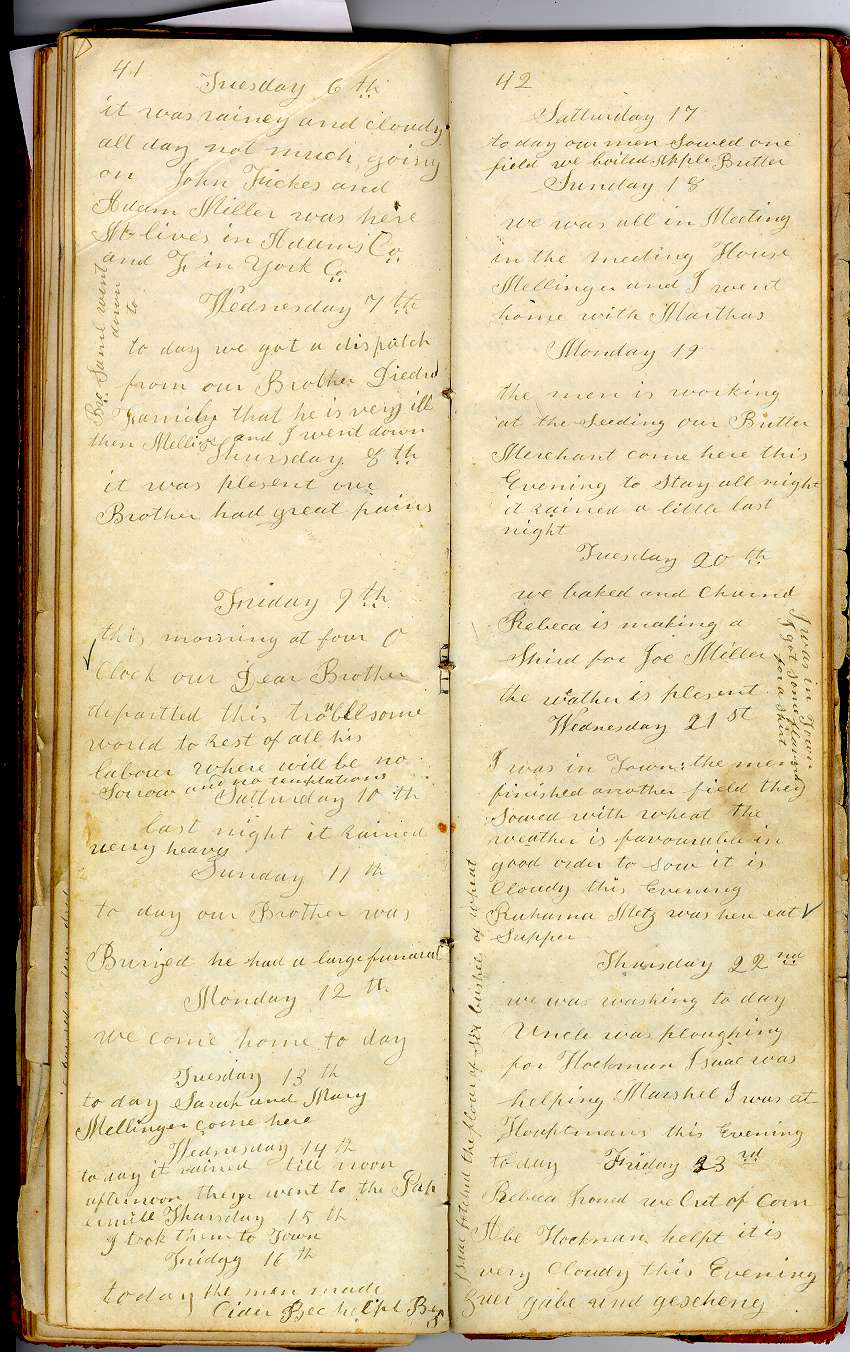 41
Tuesday 6 th
it was rainey and cloudy
all day not much going
on John Fickes and
Adam Miller was here
M lives in Adams Co
and F in York Co
Wednesday 7 th
to day we got a dispatch
from our Brother Diedrd
Family that he is very ill
then Melli and I went down
Bro Saml went
down to
Thursday 8 th
it was plesent our
Brother had great pains
Friday 9 th
this morning at four O
Clock our Dear Brother
departted this troublesome
world to Rest of all his
labour where will be no
Sorrow and no temptations
Satturday 10 th
last night it Rained
very heavy
Sunday 11 th
to day our Brother was
Buried he had a large funaral
Monday 12 th
we come home to day
Tuesday 13 th
to day Sarah and Mary
Mellinger come here
Wednesday 14 th
to day it rained till noon
afternoon they went to the Pap
ermill Thursday 15 th
I took them to Town
Friday 16 th
today the men made
Cider Bec helpt
42
Satturday 17
to day our men Sowed one
field we boiled Apple Butter
Sunday 18
we was all in Meeting
in the meeting House
Mellinger and I went
home with Marthas
Monday 19
the men is working
at the Seeding our Butter
Merchant come here this
Evening to Stay all night
it Rained a little last
night
Tuesday 20 th
we baked and Churnd
Rebeca is making a
Shird for Joe Miller
the weather is plesent
I was in Town
I got some flannel
for a shirt
Wednesday 21 st
I was in Town: the men
finished another field they
Sowed with wheat the
weather is favourable in
good order to Sow it is
Cloudy this Evening
Ruhama Metz was here eat
Supper
Thursday 22 nd
we was washing to day
Uncle was ploughing
for Hockman Isaac was
helping Marshel I was at
Houptmans this Evening
to day Friday 23 rd
Rebeca Irond we Cut of Corn
Abe Hockman helpt it is
very Cloudy this Evening
gabe und gescheng
Isaac fetched the flour of six bushel of wheat